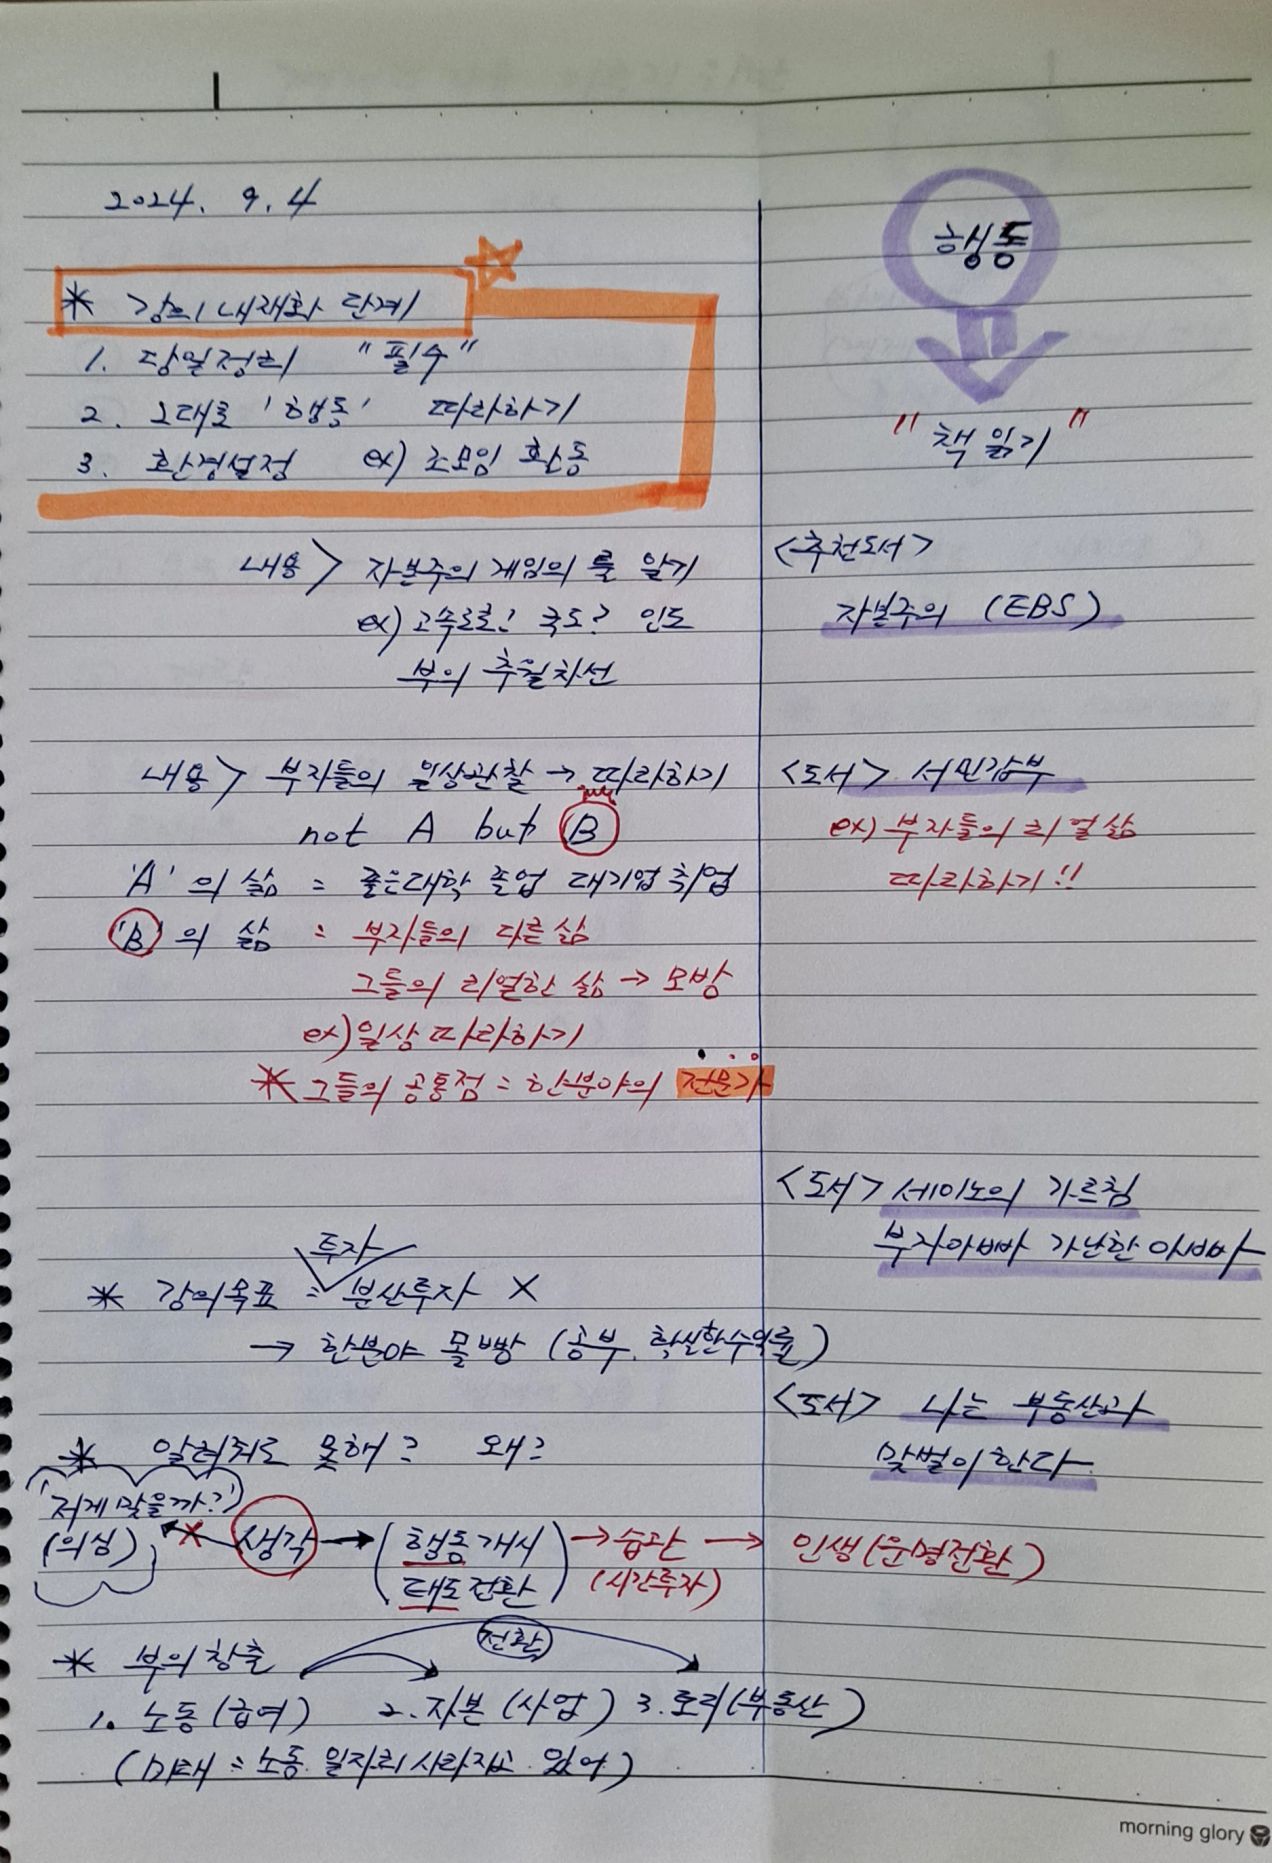 2024. 9. 4
* 강의 내재화 단계
1. 당일정리 "필수"
2. 그대로 '행동' 따라하기
3. 환경설정 ex) 조모임 활동
내용> 자본주의 게임의 룰 알기
ex) 고속도로? 국도? 인도
부의 추월차선
내용> 부자들의 일상관찰 → 따라하기
not A but B
'A'의 삶 = 좋은대학 졸업 대기업 취업
'B'의 삶 = 부자들의 다른 삶
그들의 리얼한 삶 → 모방
ex) 일상 따라하기
* 그들의 공통점 = 한분야의 전문가
투자
* 강의목표 = 분산투자 X
→ 한분야 몰빵 (공부, 확실한수익률)
* 알려줘도 못해? 왜?
'저게 맞을까?'
(의심) X 생각 → (행동개시 → 습관 → 인생(운명전환)
태도전환) (시간투자)
* 부의 창출 전환
1. 노동(급여) 2. 자본(사업) 3. 토지(부동산)
(미래 = 노동 일자리 사라지고 있어)
행동
"책 읽기"
<추천도서>
자본주의 (EBS)
<도서> 서민갑부
ex) 부자들의 리얼삶
따라하기!!
<도서> 세이노의 가르침
부자아빠 가난한 아빠
<도서> 나는 부동산과
맞벌이한다
morning glory